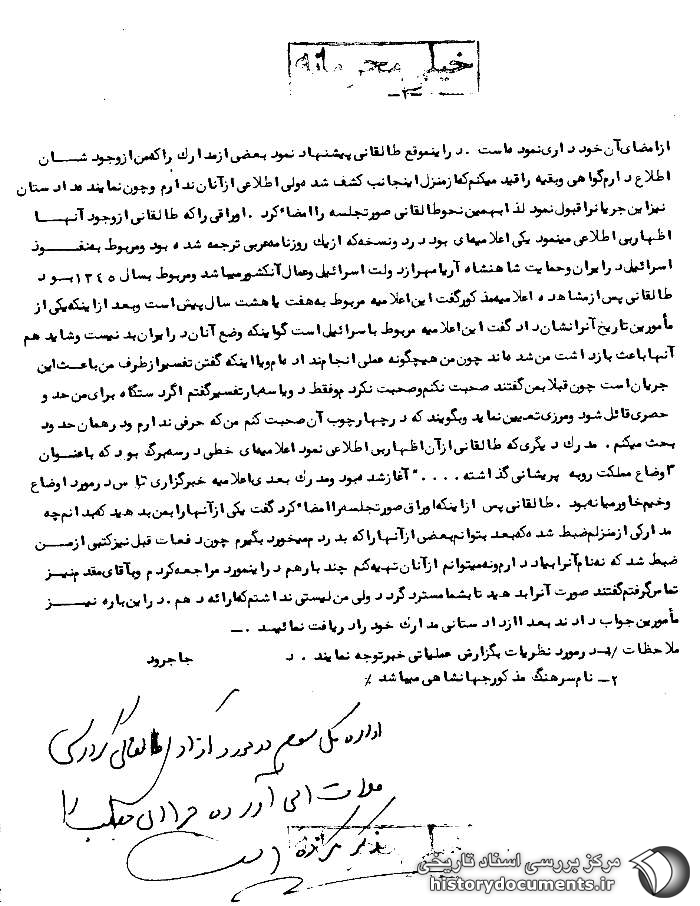 خیلی محرمانه
-۲-
از امضای آن خود داری نموده است . در این موقع طالقانی پیشنهاد نمود بعضی از مدارک را که من از وجود شان
اطلاع دارم گواهی و بقیه را قید میکنم که از منزل اینجانب کشف شده ولی اطلاعی از آنان ندارم و چون نماینده دادستان
نیز این جریان را قبول نمود لذا بهمین نحو طالقانی صورتجلسه را امضاء کرد . اوراقی را که طالقانی از وجود آنها
اظهار بی اطلاعی مینمود یکی اعلامیه‌ای بود در دو نسخه که از یک روزنامه عربی ترجمه شده بود و مربوط به نفوذ
اسرائیل در ایران و حمایت شاهنشاه آریامهر از دولت اسرائیل و عمال آنکشور میباشد و مربوط بسال ۱۳۴۵ بود
طالقانی پس از مشاهده اعلامیه مذکور گفت این اعلامیه مربوط به هفت یا هشت سال پیش است و بعد از اینکه یکی از
مأمورین تاریخ آنرا نشان داد گفت این اعلامیه مربوط با سرائیل است گو اینکه وضع آنان در ایران بد نیست و شاید هم
آنها باعث بازداشت من شده اند چون من هیچگونه عملی انجام نداده ام و یا اینکه گفتن تفسیر از طرف من باعث این
جریان است چون قبلا بمن گفتند صحبت نکنم و صحبت نکردم و فقط دو یا سه بار تفسیر گفتم اگر دستگاه برای من حد و
حصری قائل شود و مرزی تعیین نماید و بگویند که در چهار چوب آن صحبت کنم من که حرفی ندارم و در همان حدود
بحث میکنم . مدرک دیگری که طالقانی از آن اظهار بی اطلاعی نمود اعلامیه‌ای خطی در سه برگ بود که با عنوان
" اوضاع مملکت رو به پریشانی گذاشته . . . . " آغاز شده بود و مدرک بعدی اعلامیه خبرگزاری تاس در مورد اوضاع
وخیم خاور میانه بود . طالقانی پس از اینکه اوراق صورتجلسه را امضاء کرد گفت یکی از آنها را بمن بدهید که بدانم چه
مدارکی از منزلم ضبط شده که بعد بتوانم بعضی از آنها را که بدردم میخورد بگیرم چون دفعات قبل نیز کتبی از من
ضبط شد که نه نام آنرا بیاد دارم و نه میتوانم از آنان تهیه کنم چند بار هم در اینمورد مراجعه کردم و با آقای مقدم نیز
تماس گرفتم گفتند صورت آنرا بدهید تا بشما مسترد گردد ولی من لیستی نداشتم که ارائه دهم . در این باره نیز
مأمورین جواب دادند بعدا از دادستانی مدارک خود را دریافت نمائید . ـ
ملاحظات /۱ـ در مورد نظریات بگزارش عملیاتی خبر توجه نمایند . د جاجرود
۲ـ نام سرهنگ مذکور جهانشاهی میباشد ٪
اداره کل سوم در مورد آزاد طالقانی
آورده
خیلی
مرکز بررسی اسناد تاریخی
historydocuments.ir